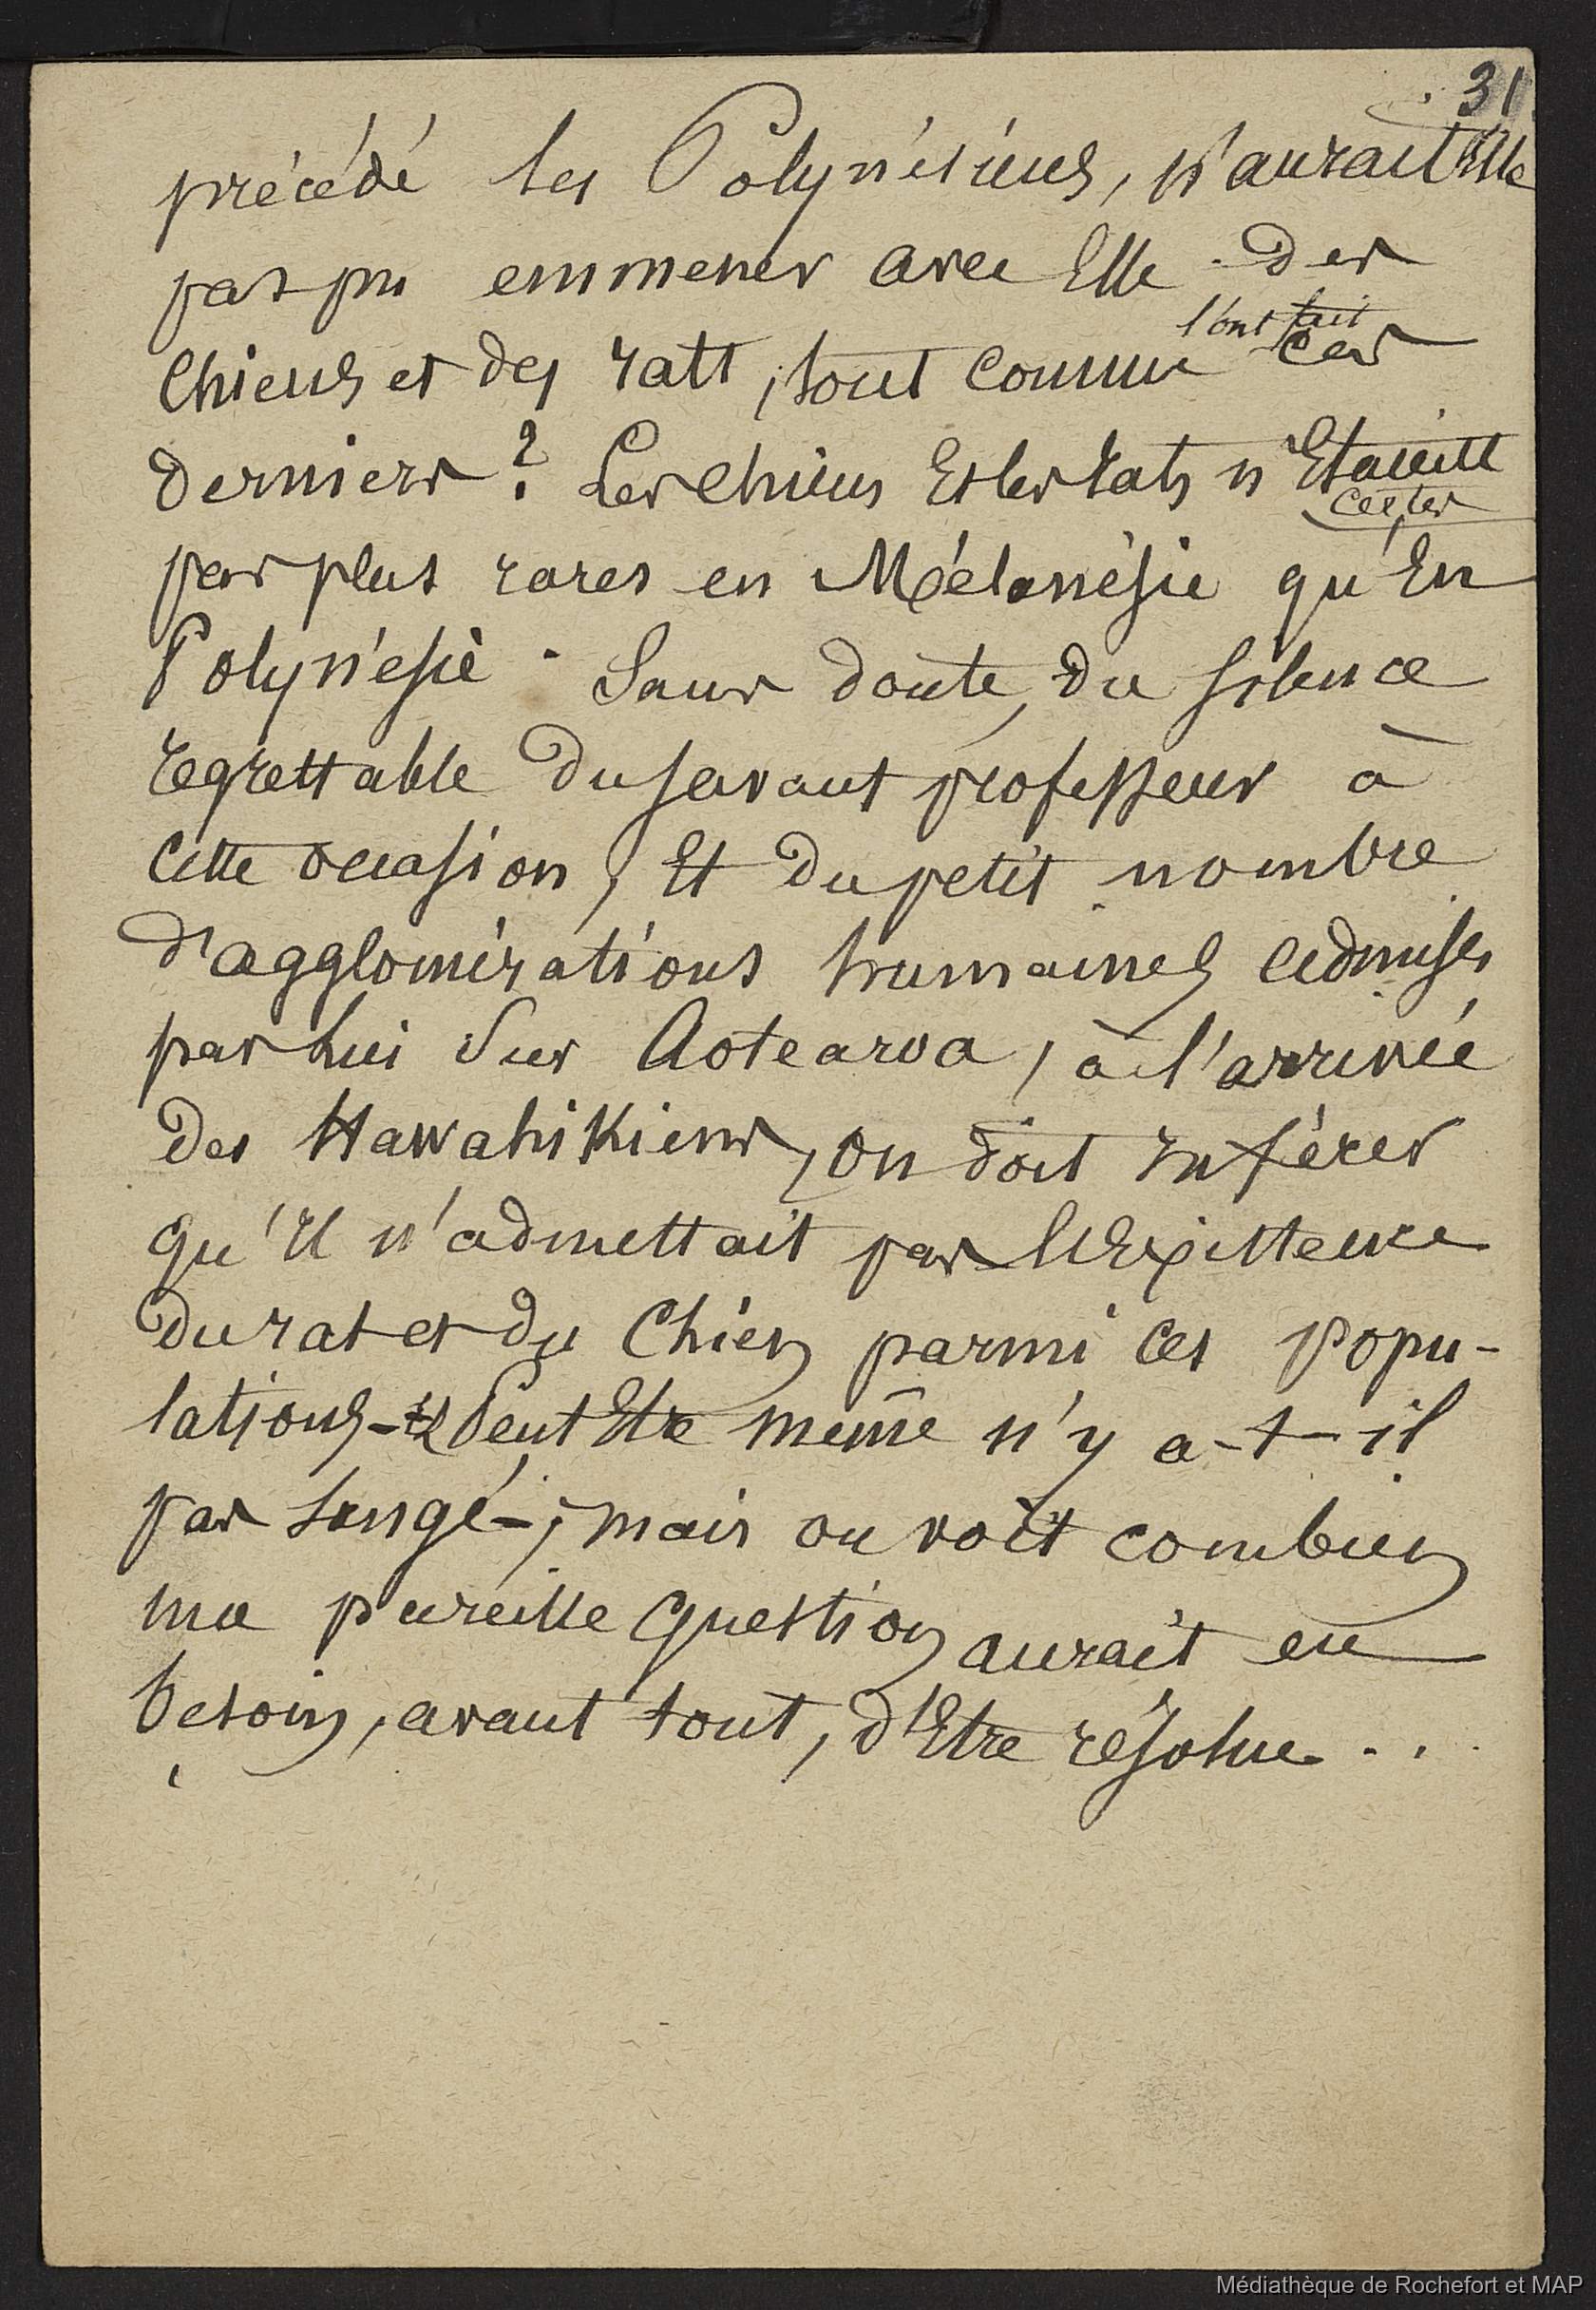 31
précédé les Polynésiens, n'aurait Elle
pas pu emmener avec Elle des
l'ont fait
Chiens et des rats, tout comme ces
derniers ? Les Chiens Et les rats n'Etaient
certes
pas plus rares en Mélanésie qu'En
Polynésie. Sans doute, du silence
regrettable du savant professeur à
cette occasion, Et du petit nombre
d'agglomérations humaines admises
par lui sur Aotearoa, à l'arrivée
des Hawahikiens, on doit inférer
qu'il n'admettait pas l'Existence
du rat et du Chien parmi ces popu-
lations - Peut Etre même n'y a-t-il
pas songé -; mais on voit combien
une pareille question aurait eu
besoin, avant tout, d'Etre résolue...
Médiathèque de Rochefort et MAP